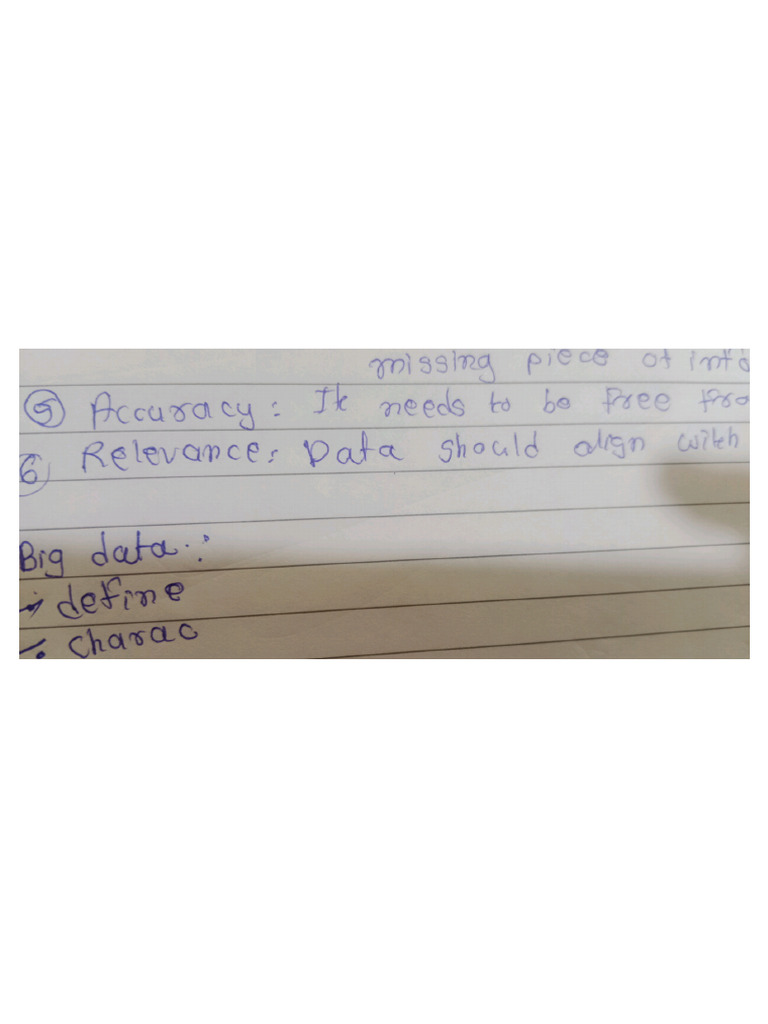 missing piece of info
⑤ Accuracy: It needs to be free fro
⑥ Relevance: Data should align with
Big data :
→ define
charac